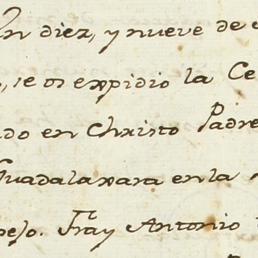 diez, y nueve de
se os expidio la Ce
do en Christo Padre
Guadalaxara en la
Fray Antonio